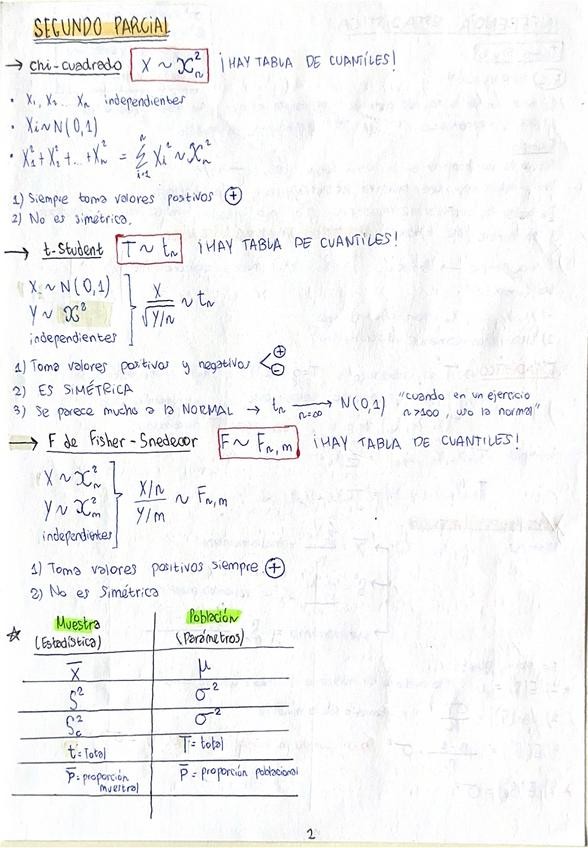 SEGUNDO PARCIAL
→ chi-cuadrado X ~ χ²ₙ ¡HAY TABLA DE CUANTILES!
• X₁, X₂ ... Xₙ independientes
• Xi ~ N(0,1)
• X₁² + X₂² + ... + Xₙ² = ∑ⁿᵢ₌₁ Xi² ~ χ²ₙ
1) Siempre toma valores positivos ⊕
2) No es simétrica.
→ t-Student T ~ tₙ ¡HAY TABLA DE CUANTILES!
X ~ N(0,1)
Y ~ χ²
independientes
X / √(Y/n) ~ tₙ
1) Toma valores positivos y negativos < ⊕ ⊖
2) ES SIMÉTRICA
3) Se parece mucho a la NORMAL → tₙ → n=∞ N(0,1) "cuando en un ejercicio
n>100, uso la normal"
→ F de Fisher-Snedecor F ~ Fₙ,ₘ ¡HAY TABLA DE CUANTILES!
X ~ χ²ₙ
Y ~ χ²ₘ
independientes
X/n / Y/m ~ Fₙ,ₘ
1) Toma valores positivos siempre. ⊕
2) No es simétrica
☆ Muestra Población
(Estadística) (Parámetros)
X̄ μ
S² σ²
Sc² σ²
t = Total T = total
p̄ = proporción muestral P̄ = proporción poblacional
2